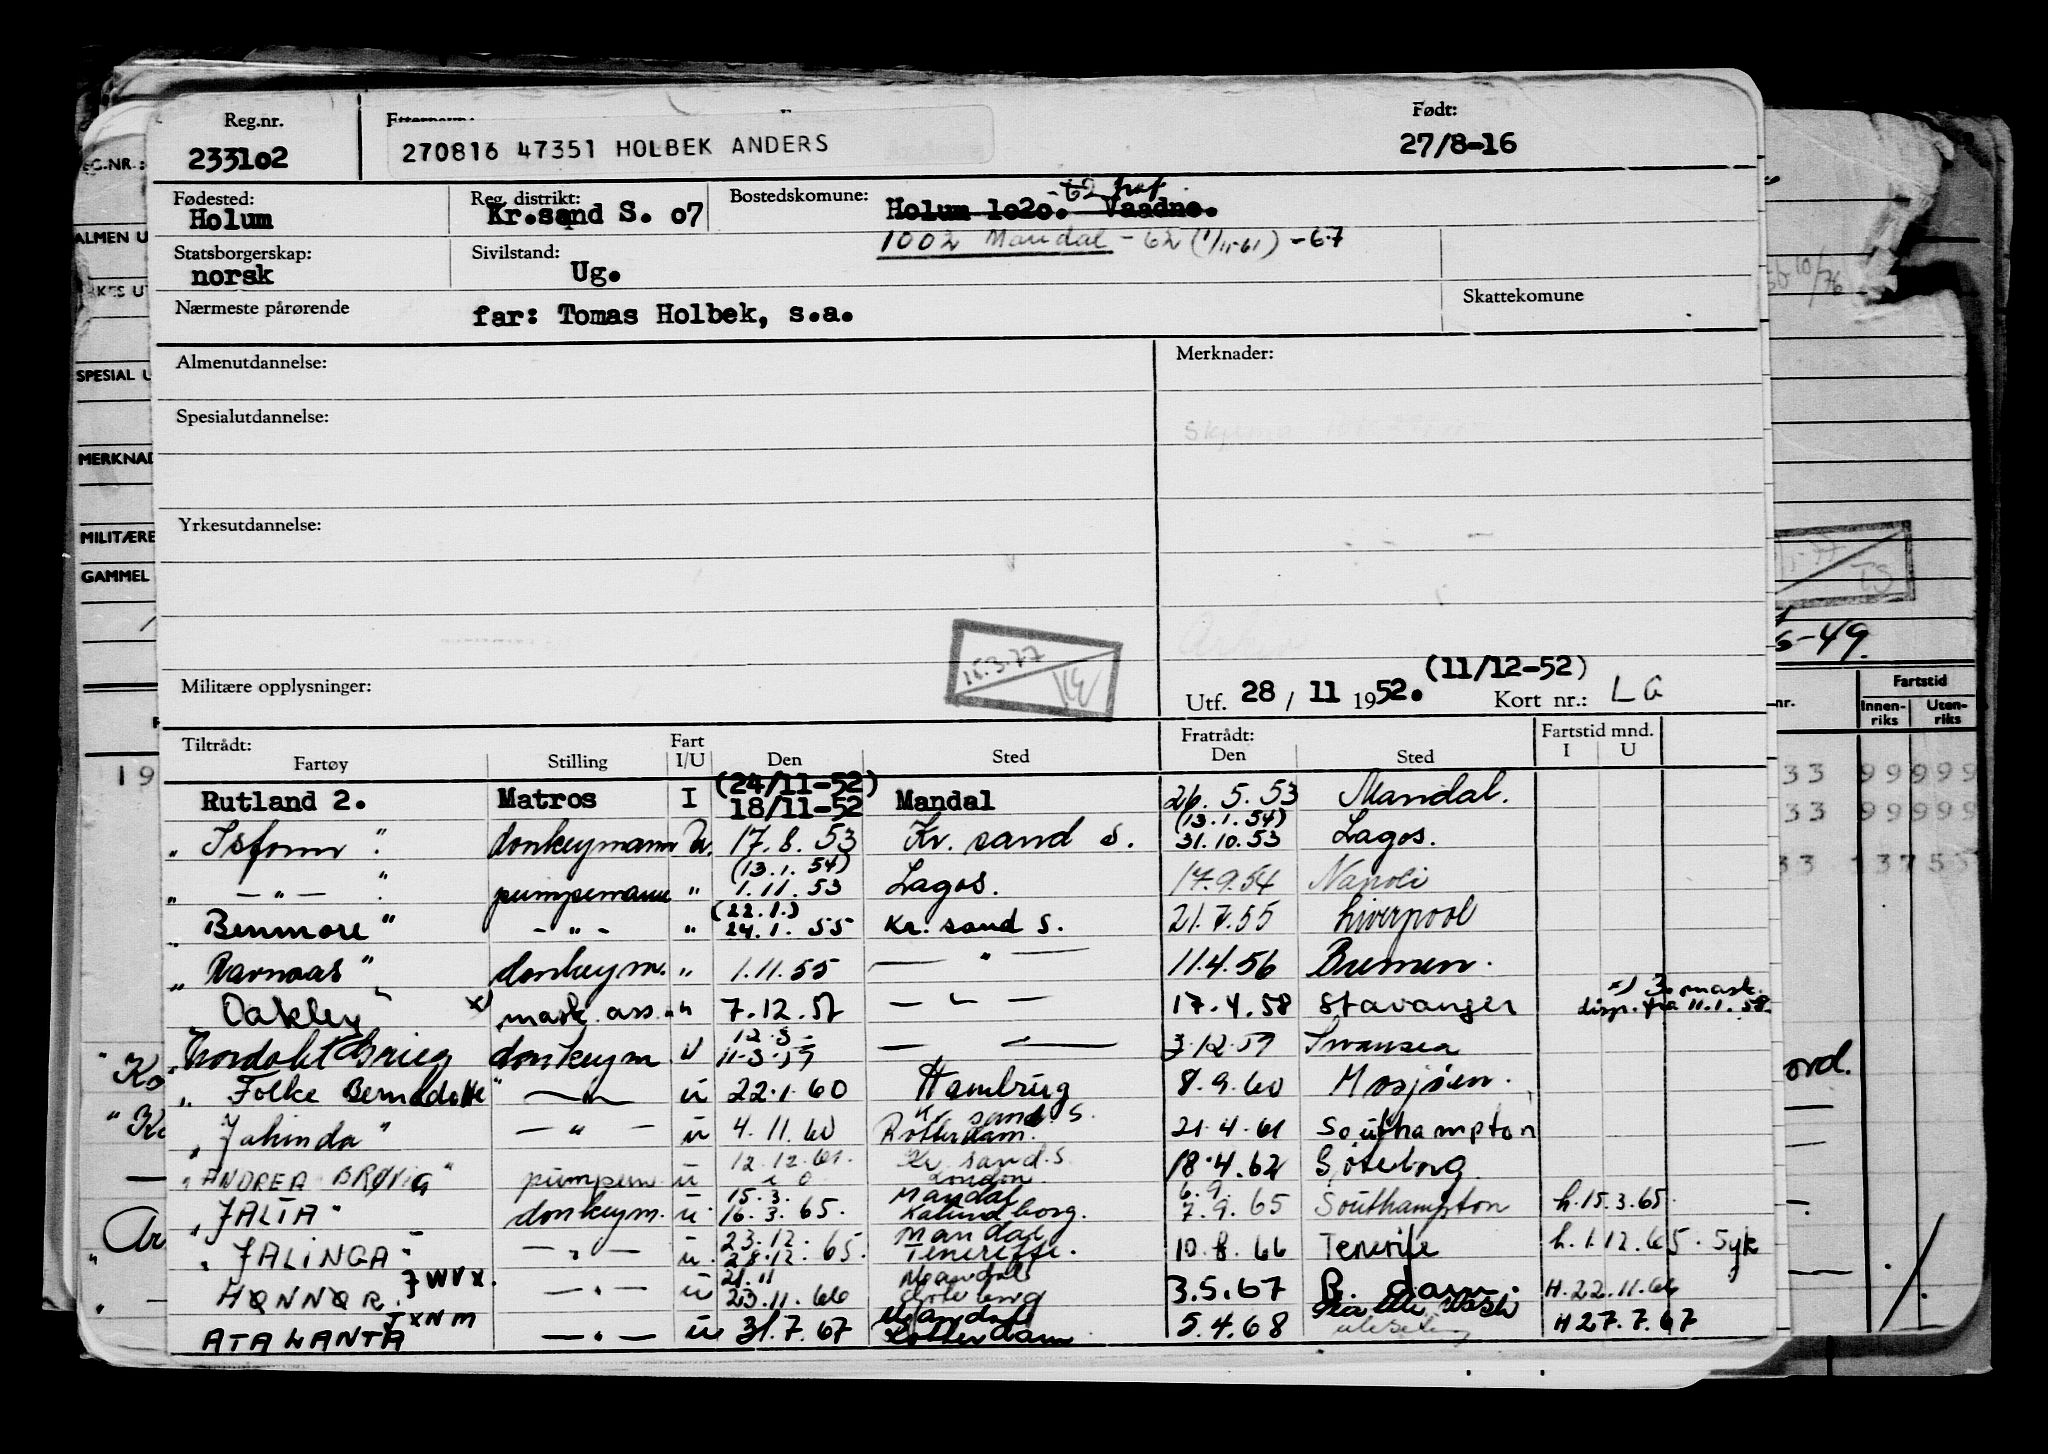 Reg.nr. Født:
233102 270816 47351 HOLBEK ANDERS 27/8-16
Fødested: Reg. distrikt: Bostedskomune: -62
Holum Kr.sand S. 07 Holum 1020. Vaadne.
1002 Mandal - 62 (1/11-61) -67
Statsborgerskap: Sivilstand:
norsk Ug.
Nærmeste pårørende far: Tomas Holbek, s.a. Skattekomune
Almenutdannelse: Merknader:
Spesialutdannelse:
Yrkesutdannelse:
15.3.77
Militære opplysninger: (11/12-52)
Utf. 28 / 11 1952. Kort nr.: L G
Tiltrådt: Fart Fratrådt: Fartstid mnd.
Fartøy Stilling I/U Den Sted Den Sted I U
(24/11-52)
Rutland 2. Matros I 18/11-52 Mandal 26.5.53 Mandal.
(13.1.54)
" Isfonn " donkeymann U. 17.8.53 Kr. sand S. 31.10.53 Lagos.
(13.1.54)
" — " — " pumpemann " 1.11.53 Lagos. 17.9.54 Napoli
(22.1.)
" Benmore " - " - " 24.1.55 Kr. sand S. 21.7.55 Liverpool
" Ravnaas " donkeym. " 1.11.55 — " — 11.4.56 Bremen.
x) 3. mask.
Oakley " x) mask. ass. " 7.12.57 — " — 17.4.58 Stavanger disp. fra 11.1.58.
12.3.
" Nordahl Grieg donkeym U 11.3.59 — " — 3.12.59 Swansea
" Folke Bernadotte " — " — U 22.1.60 Hambrug 8.9.60 Mosjøen.
Kr. sand S.
" Jalinda " — " — U 4.11.60 Rotterdam. 21.4.61 Southampton
12.12.61. Kr. sand S.
" ANDREA BRØVIG " pumpem. U London. 18.4.62 Göteborg
15.3. Mandal 6.9.
" JALTA " donkeym. U. 16.3.65. Kalundborg. 7.9.65 Southampton h.15.3.65.
23.12. Mandal
" JALINGA " — " — U. 28.12.65. Teneriffe. 10.8.66 Tenerife h.1.12.65. Syk
JWVX. 21.11 Mandal
HØNNØR. — " — U 23.11.66 3.5.67 R. dam. H.22.11.66
JXNM Mandal
ATALANTA — " — U 31.7.67 Rotterdam 5.4.68 H 27.7.67
EG.NR.:
ALMEN U
RKES UT
SPESIAL U
MERKNAD
MILITÆRE
GAMMEL
19
10/76
6-49.
nr. Fartstid
Innen-riks Uten-riks
33 99999
33 99999
33 13755
ord.